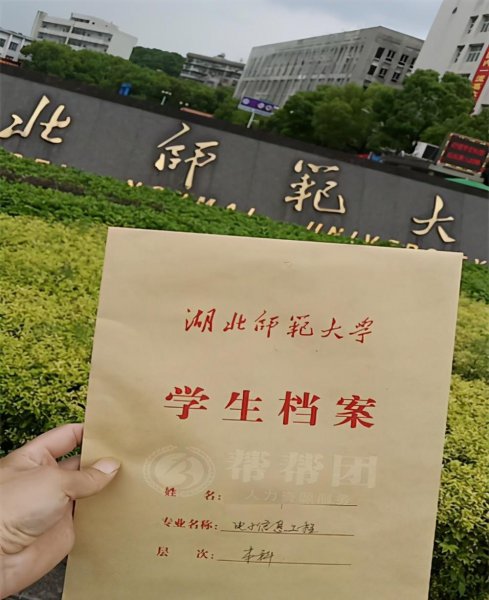 北师范大
NORMAL UNIVERSITY
湖北师范大学
学生档案
帮帮团
人力资源服务
姓 名:
专业名称: 电子信息工程
层 次: 本科